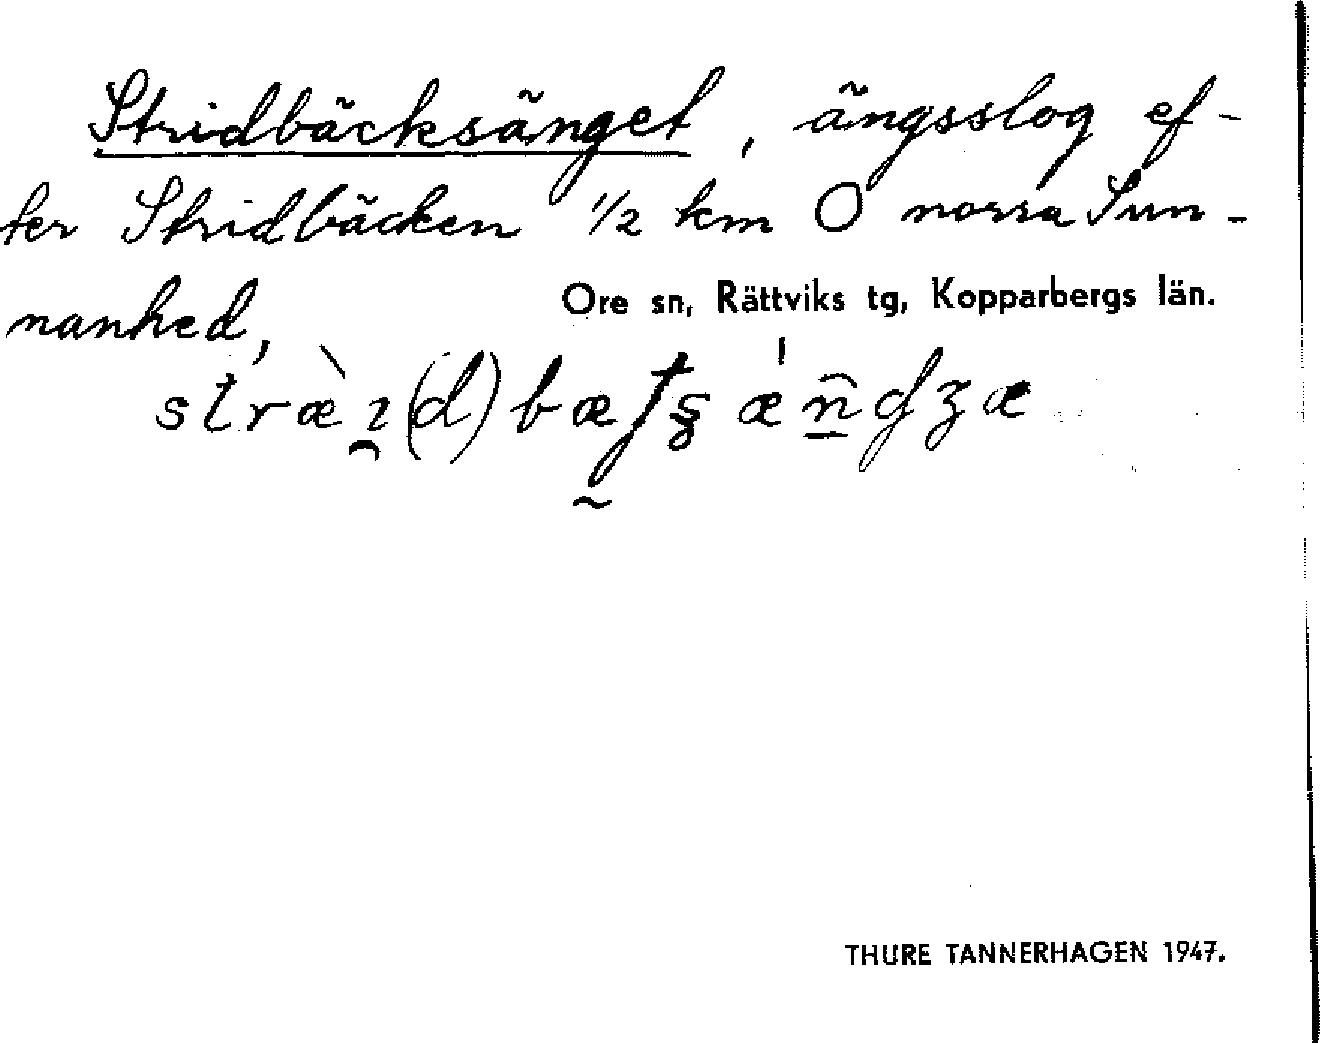 Stridbäcksänget, ängsslog ef-
ter Stridbäcken ½ km O norra Sun-
nanhed,
Ore sn, Rättviks tg, Kopparbergs län.
THURE TANNERHAGEN 1947.